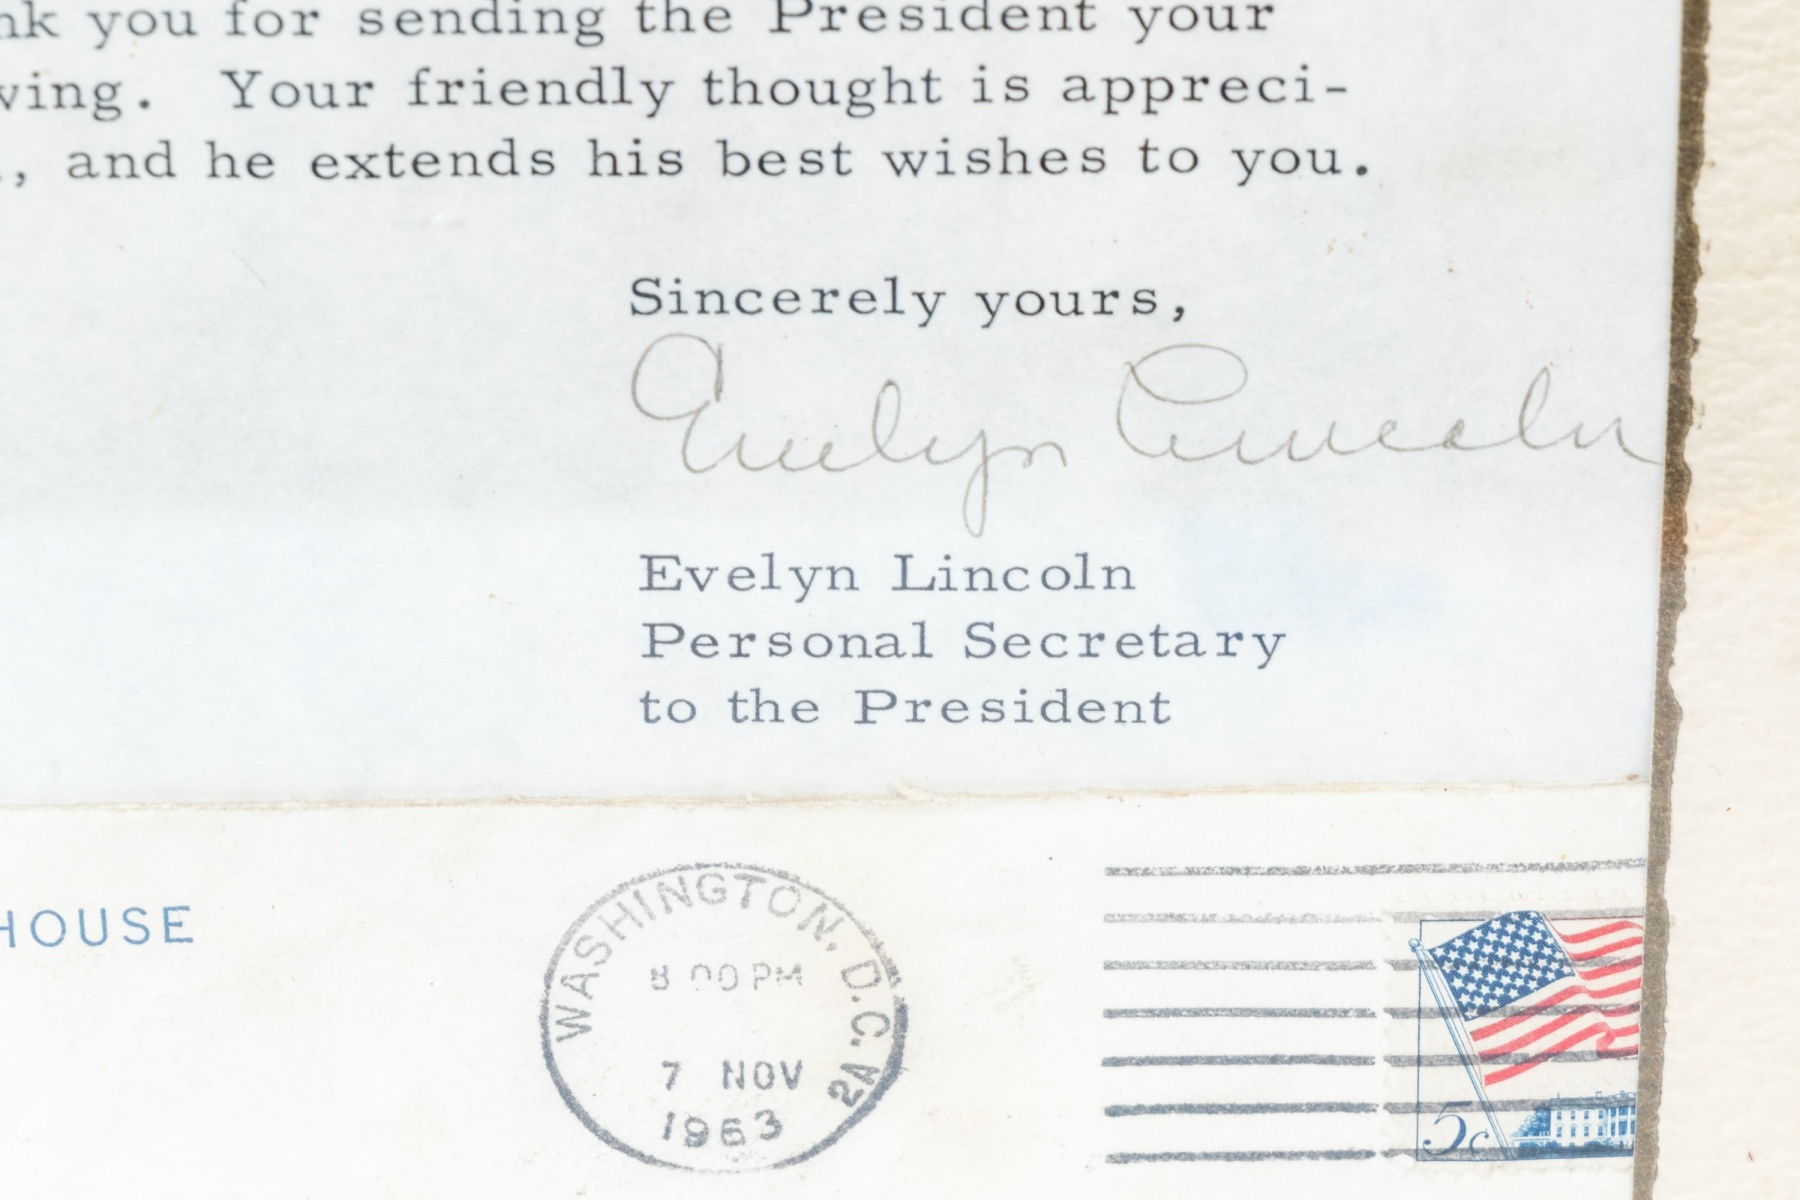 nk you for sending the President your
wing. Your friendly thought is appreci-
, and he extends his best wishes to you.
Sincerely yours,
Evelyn Lincoln
Evelyn Lincoln
Personal Secretary
to the President
HOUSE
WASHINGTON, D.C. 2A
8 00 PM
7 NOV
1963
5c